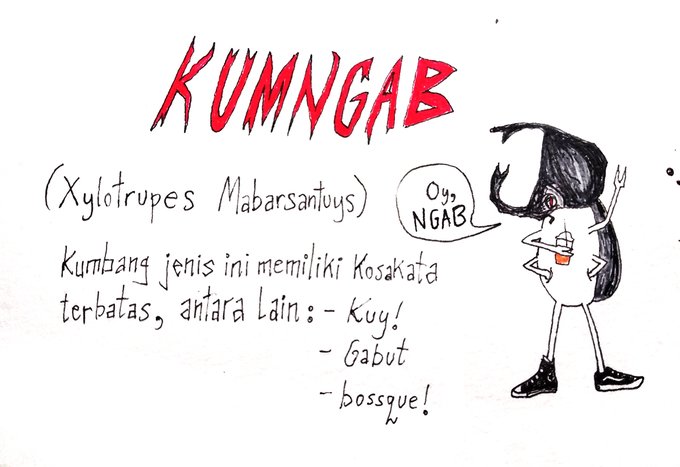 KUMNGAB
(Xylotrupes Mabarsantuys)
Oy,
NGAB
Kumbang jenis ini memiliki kosakata
terbatas, antara lain: - Kuy!
- Gabut
- bossque!